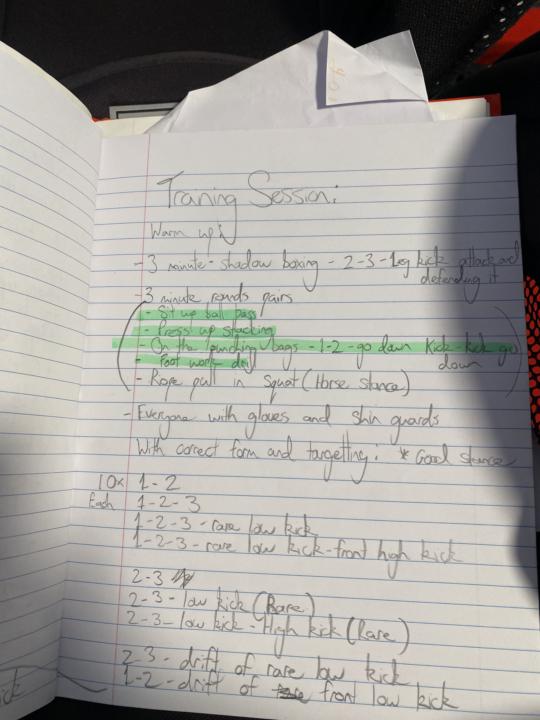 Traning Session:
Warm up:
- 3 minute - shadow boxing - 2-3-leg kick attack and
defending it
- 3 minute rounds pairs
- Sit up ball pass
- Press up stacking
- On the punching bags - 1-2 - go down Kick-kick go
down
- Foot work drill
- Rope pull in squat (Horse stance)
- Everyone with gloves and shin guards
With correct form and targetting: * Good stance
10x 1-2
Each 1-2-3
1-2-3 - rare low kick
1-2-3 - rare low kick - front high kick
2-3
2-3 - low kick (Rare)
2-3 - low kick - High kick (Rare)
2-3 - drift of rare low kick
1-2 - drift of front low kick